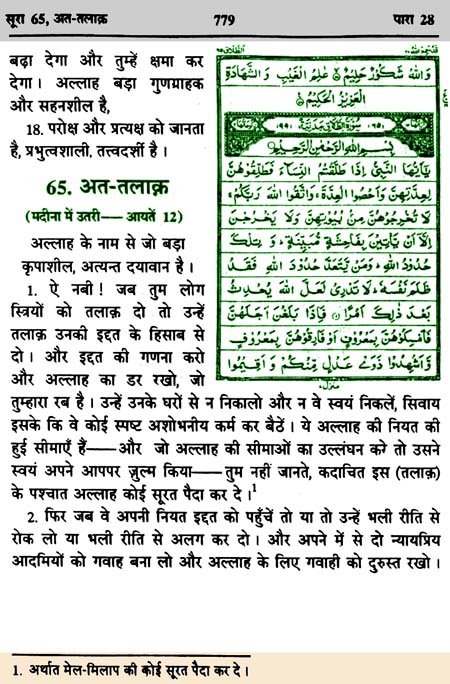 सूरा 65, अत-तलाक़ 779 पारा 28
बढ़ा देगा और तुम्हें क्षमा कर
देगा। अल्लाह बड़ा गुणग्राहक
और सहनशील है,
18. परोक्ष और प्रत्यक्ष को जानता
है, प्रभुत्वशाली, तत्वदर्शी है।
65. अत-तलाक़
(मदीना में उतरी— आयतें 12)
अल्लाह के नाम से जो बड़ा
कृपाशील, अत्यन्त दयावान है।
1. ऐ नबी! जब तुम लोग
स्त्रियों को तलाक़ दो तो उन्हें
तलाक़ उनकी इद्दत के हिसाब से
दो। और इद्दत की गणना करो
और अल्लाह का डर रखो, जो
तुम्हारा रब है। उन्हें उनके घरों से न निकालो और न वे स्वयं निकलें, सिवाय
इसके कि वे कोई स्पष्ट अशोभनीय कर्म कर बैठें। ये अल्लाह की नियत की
हुई सीमाएँ हैं—और जो अल्लाह की सीमाओं का उल्लंघन करे तो उसने
स्वयं अपने आपपर ज़ुल्म किया—तुम नहीं जानते, कदाचित इस (तलाक़)
के पश्चात अल्लाह कोई सूरत पैदा कर दे।¹
2. फिर जब वे अपनी नियत इद्दत को पहुँचें तो या तो उन्हें भली रीति से
रोक लो या भली रीति से अलग कर दो। और अपने में से दो न्यायप्रिय
आदमियों को गवाह बना लो और अल्लाह के लिए गवाही को दुरुस्त रखो।
وَاللّٰهُ شَكُوْرٌ حَلِيْمٌ عٰلِمُ الْغَيْبِ وَالشَّهَادَةِ
الْعَزِيْزُ الْحَكِيْمُ
بِسْمِ اللّٰهِ الرَّحْمٰنِ الرَّحِيْمِ
يٰٓاَيُّهَا النَّبِيُّ اِذَا طَلَّقْتُمُ النِّسَآءَ فَطَلِّقُوْهُنَّ
لِعِدَّتِهِنَّ وَاَحْصُوا الْعِدَّةَ وَاتَّقُوا اللّٰهَ رَبَّكُمْ
لَا تُخْرِجُوْهُنَّ مِنْۢ بُيُوْتِهِنَّ وَلَا يَخْرُجْنَ
اِلَّآ اَنْ يَّاْتِيْنَ بِفَاحِشَةٍ مُّبَيِّنَةٍ وَتِلْكَ
حُدُوْدُ اللّٰهِ وَمَنْ يَّتَعَدَّ حُدُوْدَ اللّٰهِ فَقَدْ
ظَلَمَ نَفْسَهٗ لَا تَدْرِيْ لَعَلَّ اللّٰهَ يُحْدِثُ
بَعْدَ ذٰلِكَ اَمْرًا فَاِذَا بَلَغْنَ اَجَلَهُنَّ
فَاَمْسِكُوْهُنَّ بِمَعْرُوْفٍ اَوْ فَارِقُوْهُنَّ بِمَعْرُوْفٍ
وَّاَشْهِدُوْا ذَوَيْ عَدْلٍ مِّنْكُمْ وَاَقِيْمُوا
1. अर्थात मेल-मिलाप की कोई सूरत पैदा कर दे।